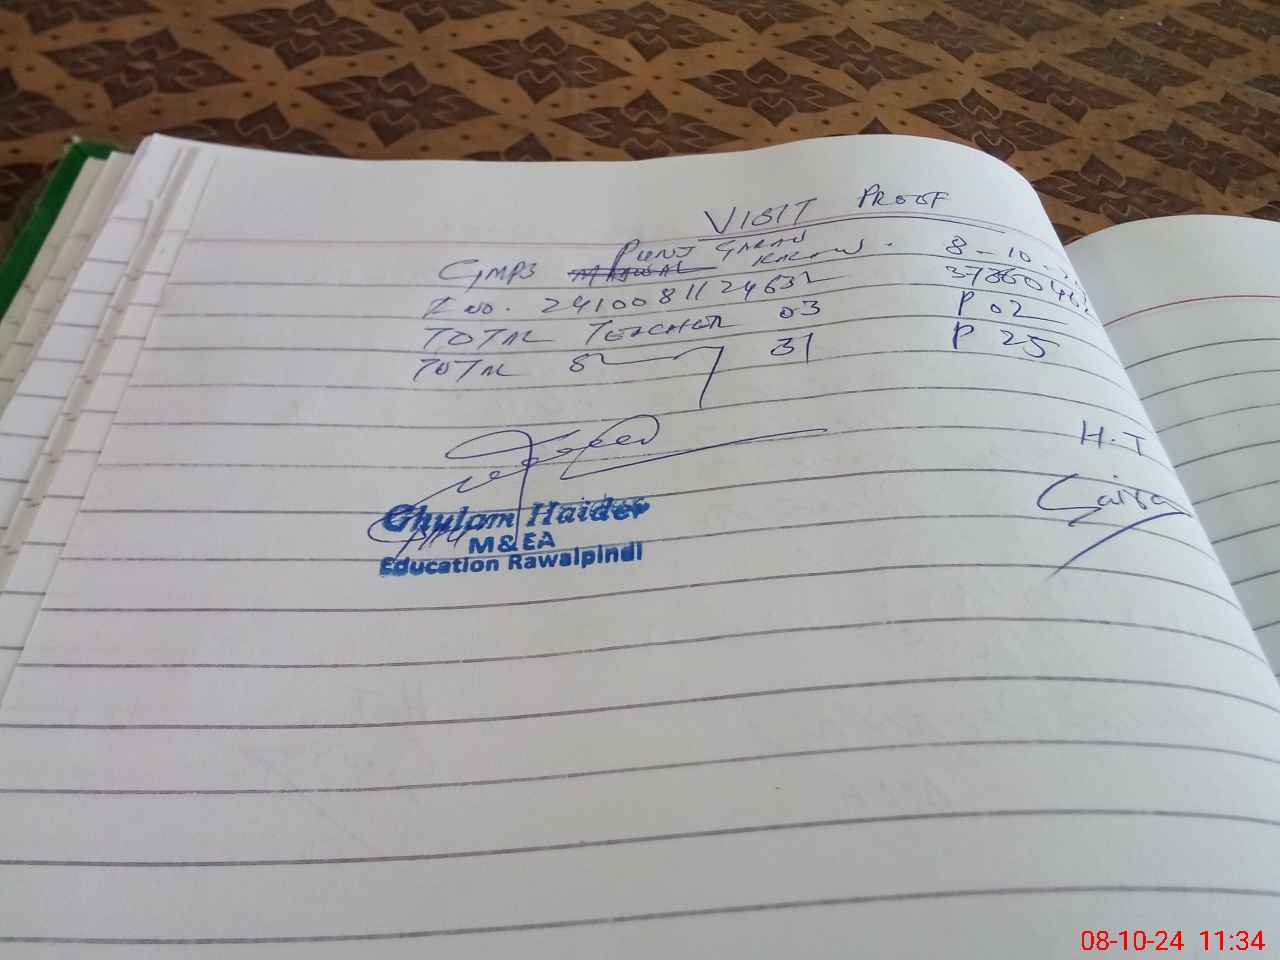 VISIT PROOF
GMPS PUNJ GARAN KALAN. 8-10-
R NO. 2410081124632
TOTAL TEACHER 03 P 02
TOTAL S 31 P 25
H.T
Ghulam Haider
M&EA
Education Rawalpindi
08-10-24 11:34